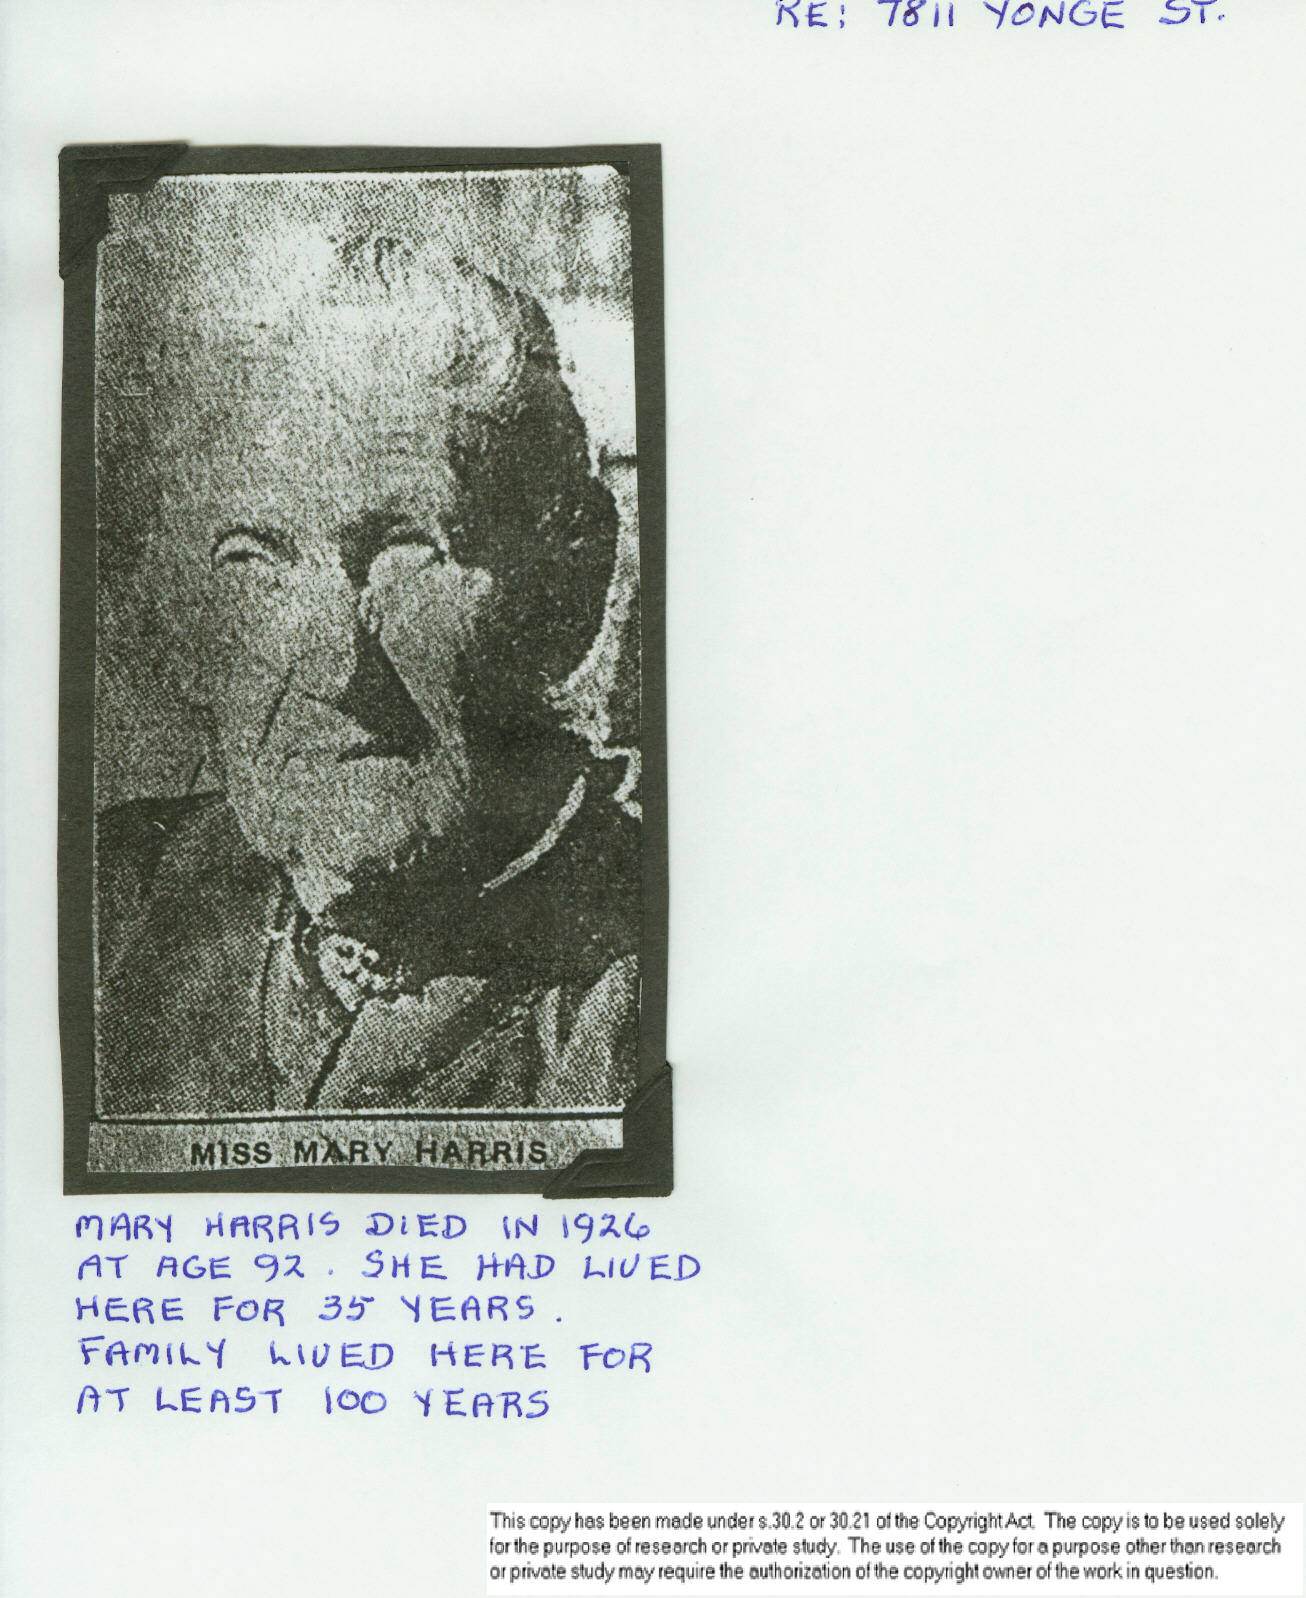 RE: 7811 YONGE ST.
MISS MARY HARRIS
MARY HARRIS DIED IN 1926
AT AGE 92. SHE HAD LIVED
HERE FOR 35 YEARS.
FAMILY LIVED HERE FOR
AT LEAST 100 YEARS
This copy has been made under s.30.2 or 30.21 of the Copyright Act. The copy is to be used solely
for the purpose of research or private study. The use of the copy for a purpose other than research
or private study may require the authorization of the copyright owner of the work in question.